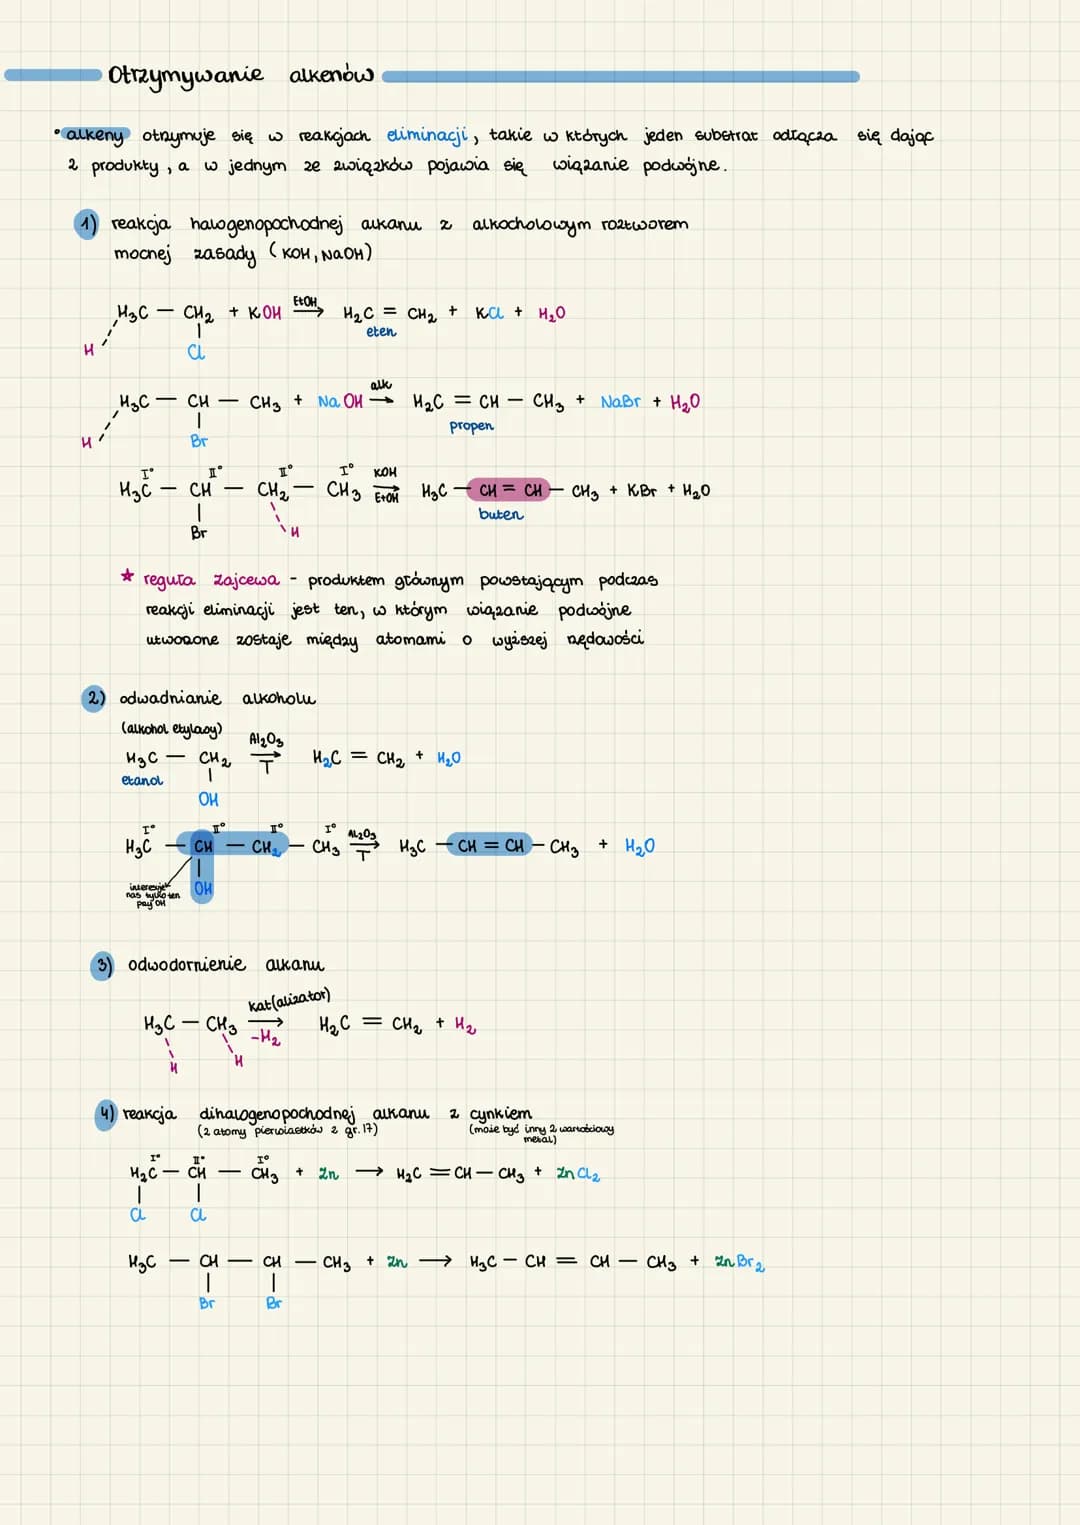 Otrzymywanie alkenów
• alkeny otrzymuje się w reakcjach eliminacji, takie w których jeden substrat odłącza się dając
2 produkty, a w jednym ze związków pojawia się wiązanie podwójne.
1) reakcja halogenopochodnej alkanu z alkocholowym roztworem
mocnej zasady (KOH, NaOH)
H₃C — CH₂ + KOH EtOH → H₂C = CH₂ + KCl + H₂O
eten
H Cl
H₃C — CH — CH₃ + NaOH alk → H₂C = CH — CH₃ + NaBr + H₂O
propen
H Br
I° II° II° I° KOH
H₃C — CH — CH₂ — CH₃ → H₃C — CH = CH — CH₃ + KBr + H₂O
EtOH
buten
Br H
★ reguła Zajcewa - produktem głównym powstającym podczas
reakcji eliminacji jest ten, w którym wiązanie podwójne
utworzone zostaje między atomami o wyższej rzędowości
2) odwadnianie alkoholu
(alkohol etylowy)
H₃C — CH₂ Al₂O₃ → T H₂C = CH₂ + H₂O
etanol
OH
I° II° II° I° Al₂O₃
H₃C — CH — CH₂ — CH₃ → H₃C — CH = CH — CH₃ + H₂O
T
interesuje OH
nas tylko ten
przy OH
3) odwodornienie alkanu
kat(alizator)
H₃C — CH₃ → H₂C = CH₂ + H₂
-H₂
H H
4) reakcja dihalogenopochodnej alkanu z cynkiem
(2 atomy pierwiastków z gr. 17) (może być inny 2 wartościowy
metal)
I° II° I°
H₂C — CH — CH₃ + Zn → H₂C = CH — CH₃ + ZnCl₂
Cl Cl
H₃C — CH — CH — CH₃ + Zn → H₃C — CH = CH — CH₃ + ZnBr₂
Br Br